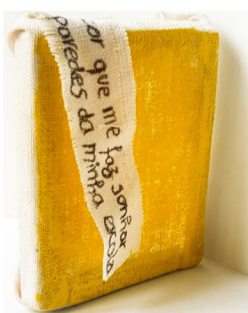 cor que me faz sonhar
paredes da minha escola